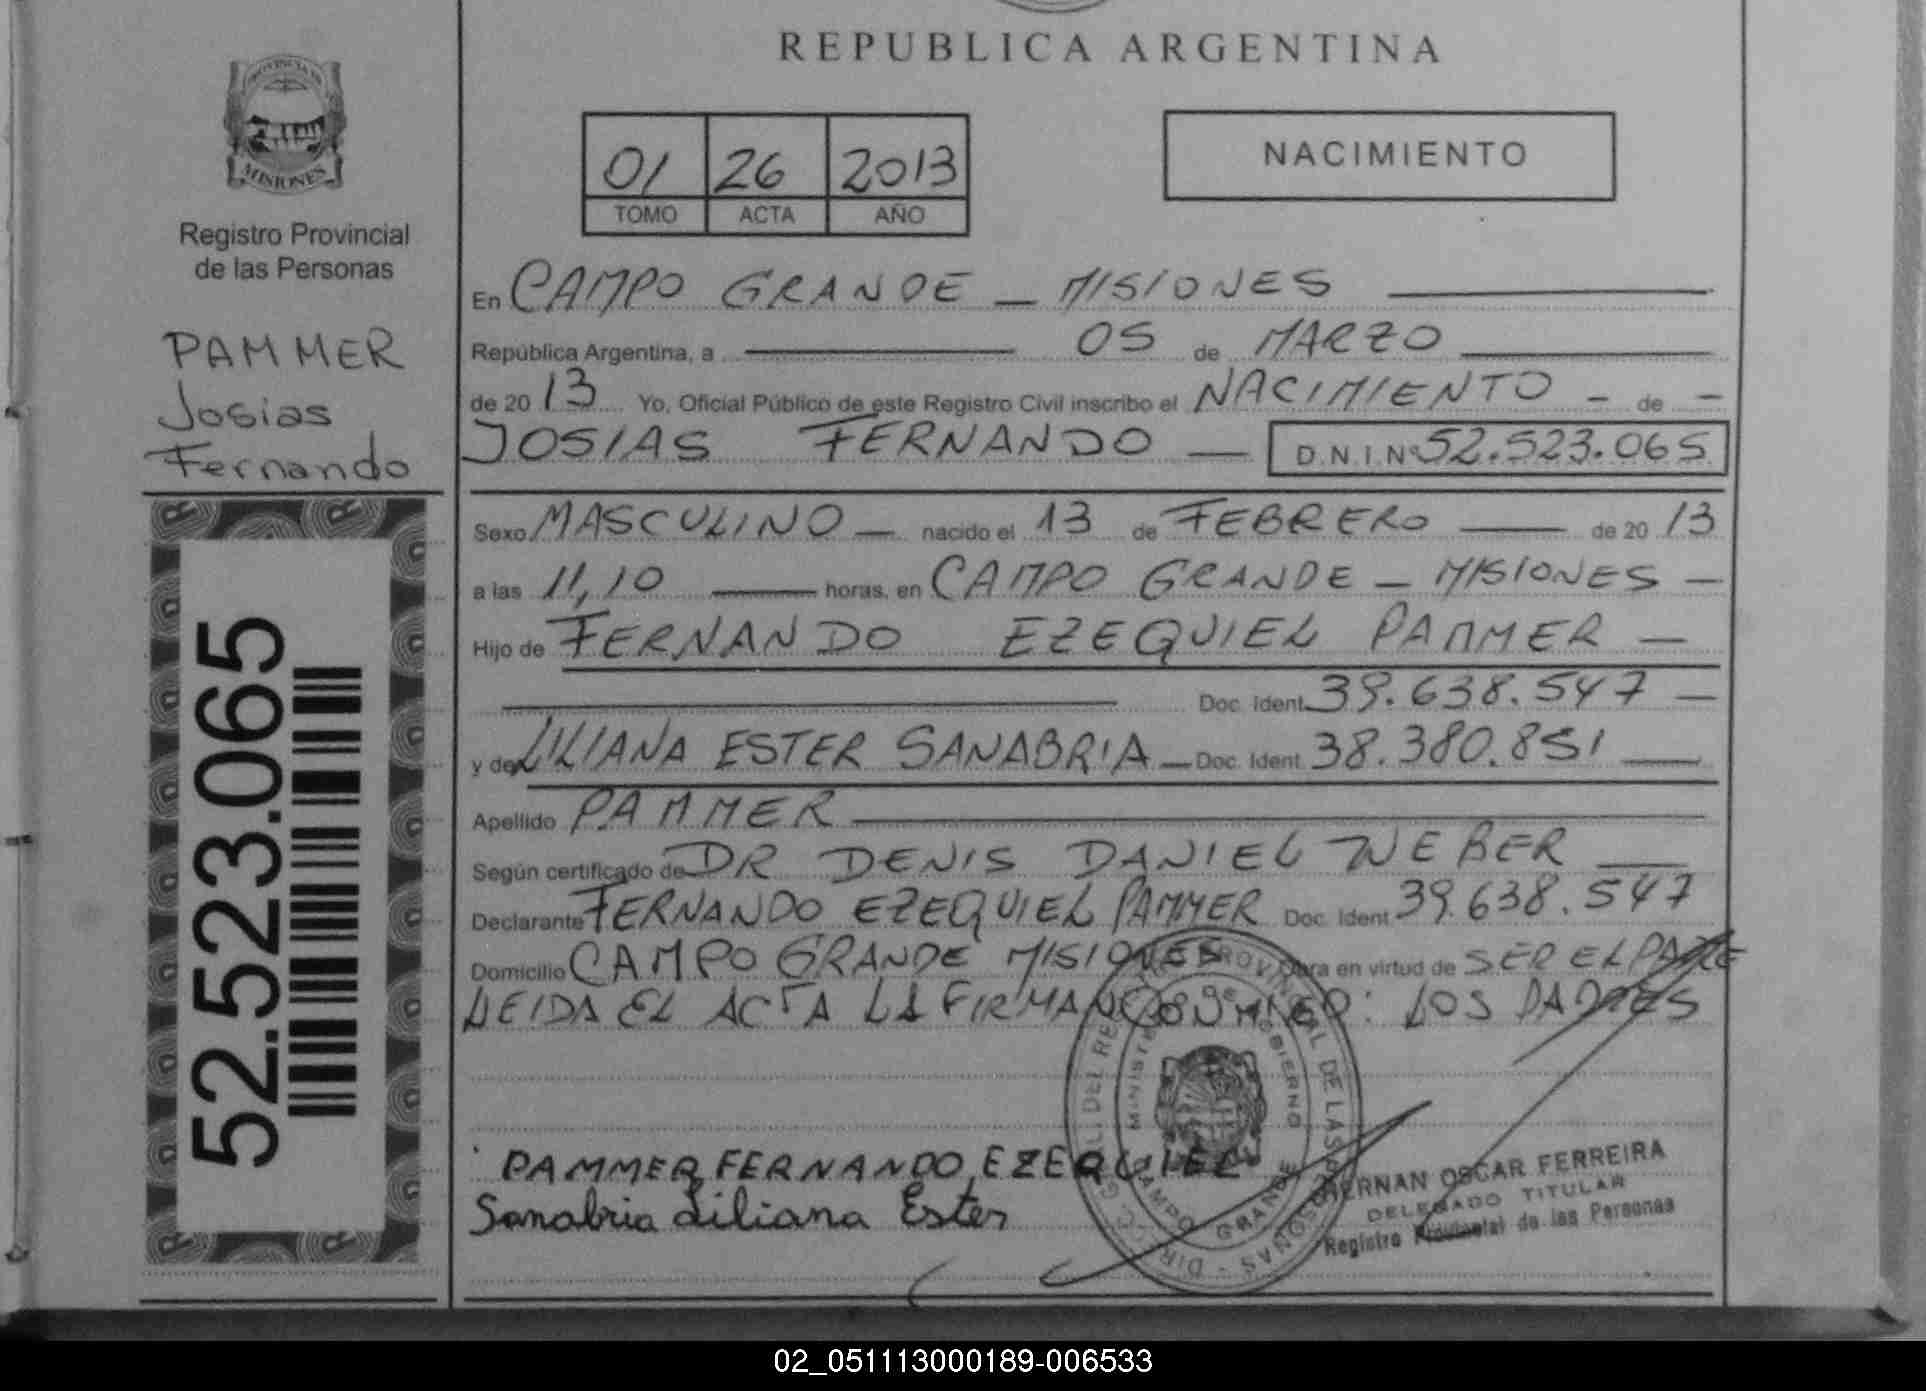 REPUBLICA ARGENTINA
PROVINCIA DE
MISIONES
Registro Provincial
de las Personas
PAMMER
Josias
Fernando
52.523.065
01 26 2013
TOMO ACTA AÑO
NACIMIENTO
En CAMPO GRANDE - MISIONES
República Argentina, a 05 de MARZO
de 2013 Yo, Oficial Público de este Registro Civil inscribo el NACIMIENTO - de -
JOSIAS FERNANDO - D.N.I.Nº 52.523.065
Sexo MASCULINO - nacido el 13 de FEBRERO de 2013
a las 11,10 horas, en CAMPO GRANDE - MISIONES -
Hijo de FERNANDO EZEQUIEL PAMMER -
Doc. Ident. 39.638.547 -
y de LILIANA ESTER SANABRIA - Doc. Ident. 38.380.851
Apellido PAMMER
Según certificado de DR DENIS DANIEL WEBER
Declarante FERNANDO EZEQUIEL PAMMER Doc. Ident. 39.638.547
Domicilio CAMPO GRANDE MISIONES Obra en virtud de SER EL PADRE
LEIDA EL ACTA LA FIRMAN CONMIGO: LOS PADRES
PAMMER FERNANDO EZEQUIEL
Sanabria Liliana Ester
MINISTERIO DE GOBIERNO
CAMPO GRANDE
HERNAN OSCAR FERREIRA
DELEGADO TITULAR
Registro Provincial de las Personas
02_051113000189-006533